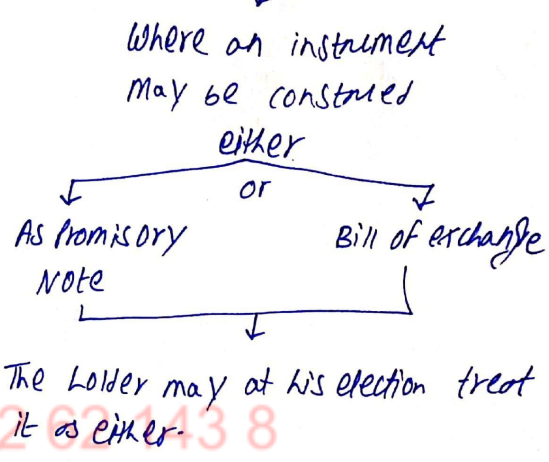 Where an instrument
may be construed
either
or
As Promisory
Note
Bill of exchange
The holder may at his election treat
it as either.
2 62 143 8